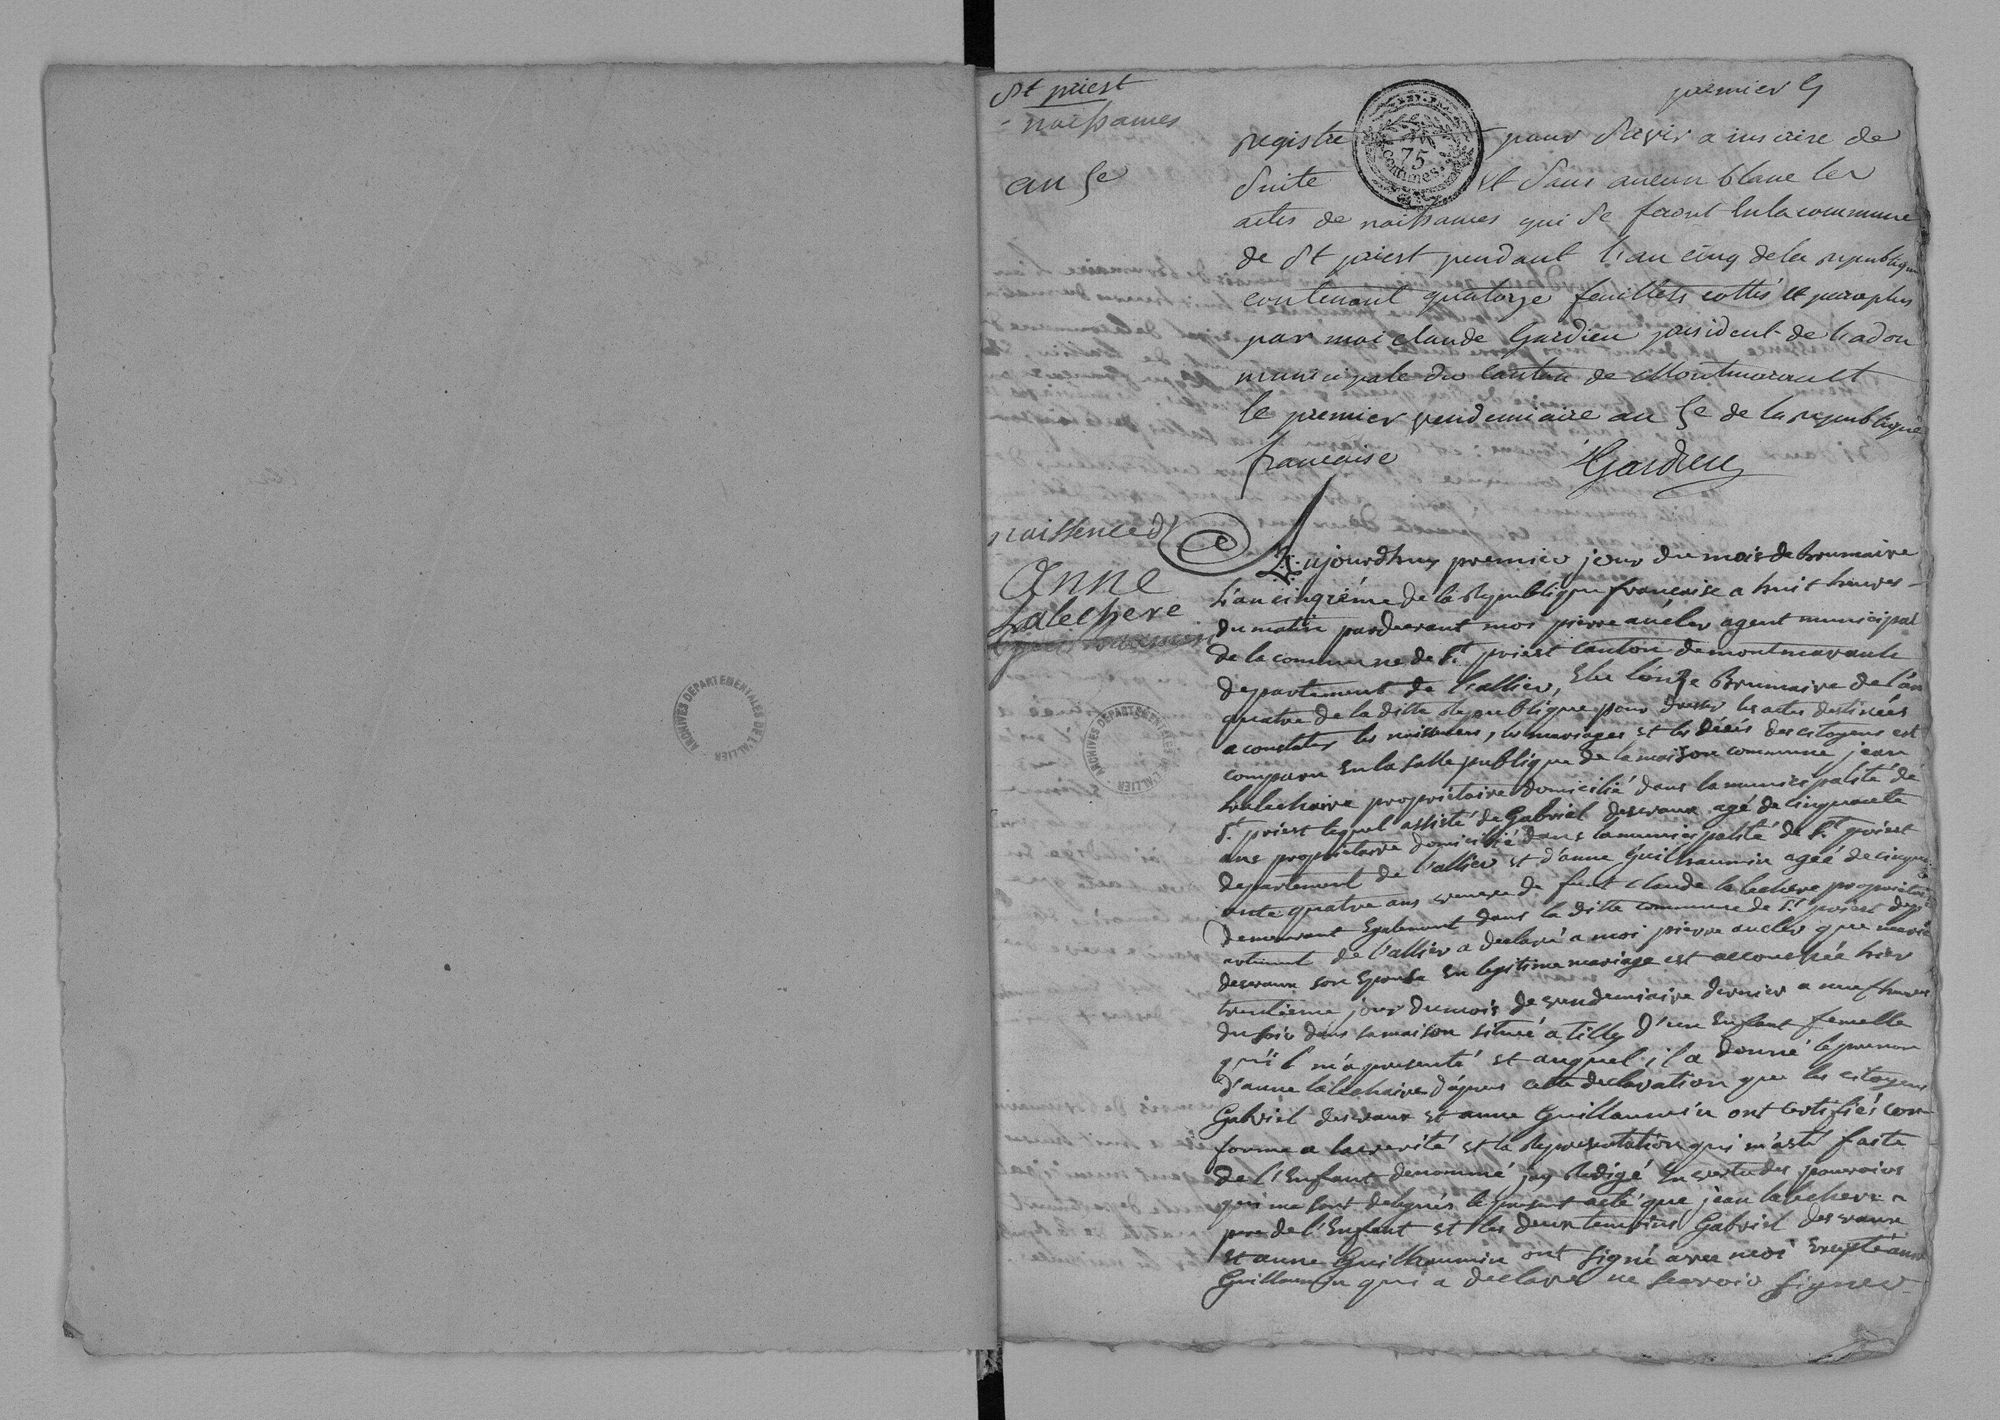 St priest
naissances
an 5e
premier
registre pour servir a inscrire de
suite et sans aucun blanc les
actes de naissances qui se feront en la commune
de St priest pendant l'an cinq de la republique
contenant quatorze feuillets cottés et paraphés
par moi claude Gardien president de l'adon
municipale du canton de Montmarault
le premier vendemiaire an 5e de la republique
francaise Gardien
75
centimes
naissence d'
Anne
Lalechere
Aujourdhuy premier jour du mois de brumaire
l'an cinqiéme de la Republique francaise a huit heures
du matin pardevant moi pierre aucler agent municipal
de la commune de St priest canton de montmarault
departement de l'allier, Elu l'onze Brumaire de l'an
quatre de la ditte Republique pour dresser les actes destinées
a constater les naissences, les mariages et les décés des citoyens est
comparu En la salle publique de la maison commune jean
lalechaire propriétaire domicilié dans la municipalité de
St priest lequel assisté de Gabriel desvaux agé de cinquante
ans proprietaire domicillié dans la municipalité de St priest
departement de l'allier et d'anne Guilhaumin ageé de cinqu
ante quatre ans veuve de feut claude lalechere propriétaire
demeurant Egalement dans la ditte commune de St priest dep
artement de l'allier a declaré a moi pierre aucler que marie
desvaux son Epouse En legitime mariage est accouchée hier
trentieme jour du mois de vendemiaire dernier a neuf heures
du soir dans sa maison située a tilly d'un Enfant femelle
qu'il m'a presenté et auquel il a donné le prenom
d'anne lalechaire d'apres cette declaration que les citoyens
Gabriel desvaux et anne Guillaumin ont certifiés con
forme a la verité et la Representation qui m'a eté faite
de l'Enfant denommé jay Redigé En vertu des pouvoirs
qui me sont delegués le present acte que jean lalechere
pere de l'Enfant et les deux temoins Gabriel desvaux
et anne Guilhaumin ont signé avec moi Excepté anne
Guillaumin qui a declaré ne scavoir signer
ARCHIVES DEPARTEMENTALES DE L'ALLIER
ARCHIVES DEPARTEMENTALES DE L'ALLIER